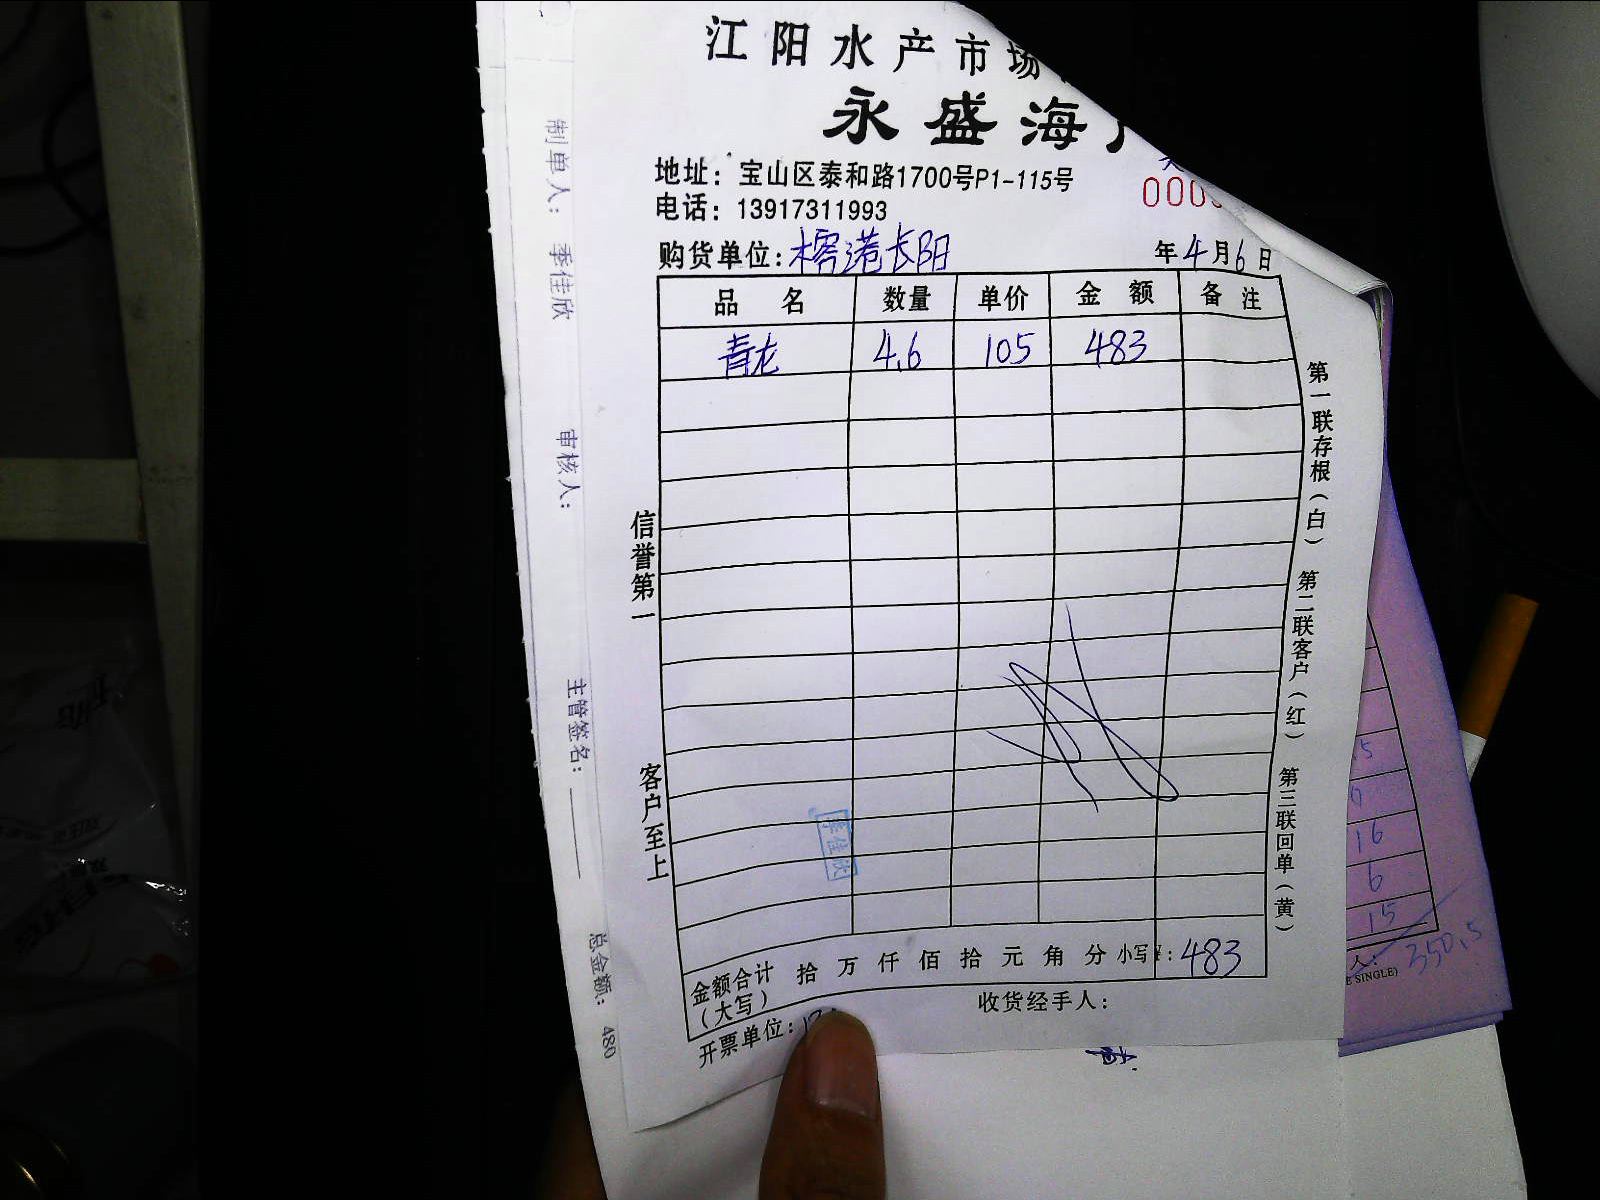 江阳水产市场
永盛海
地址：宝山区泰和路1700号P1-115号
000
电话：13917311993
购货单位：榕港长阳 年4月6日
品名 数量 单价 金额 备注
青龙 4.6 105 483
金额合计（大写） 拾 万 仟 佰 拾 元 角 分 小写¥：483
开票单位： 收货经手人：
信誉第一 客户至上
第一联存根（白） 第二联客户（红） 第三联回单（黄）
季佳欣
制单人： 季佳欣 审核人： 主管签名： 总金额： 480
5
16
6
15
350.5
人：
E SINGLE)